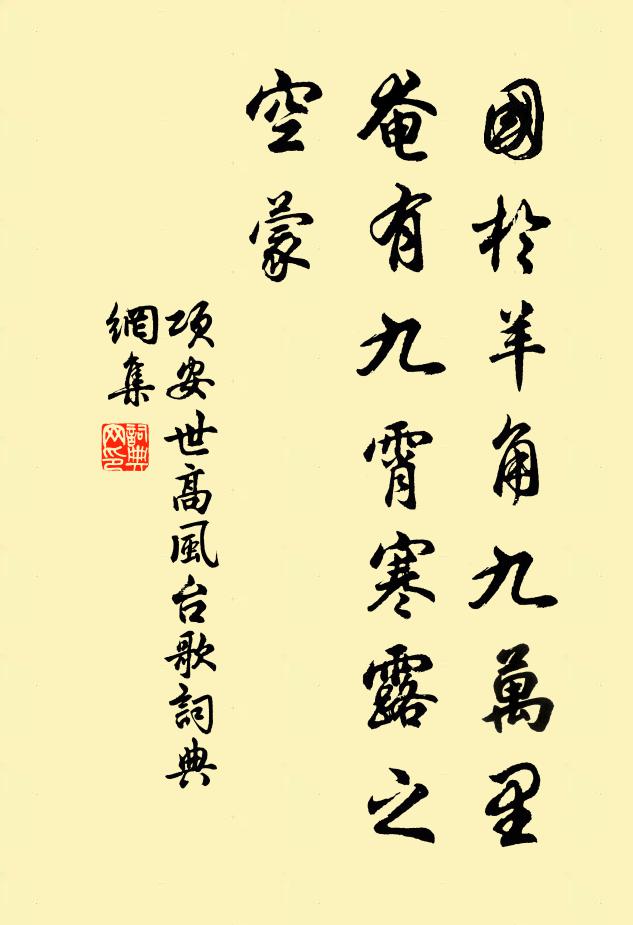 國於羊角九萬里
奄有九霄寒露之
空蒙
項安世高風台歌詞典
網集
詞典
网印